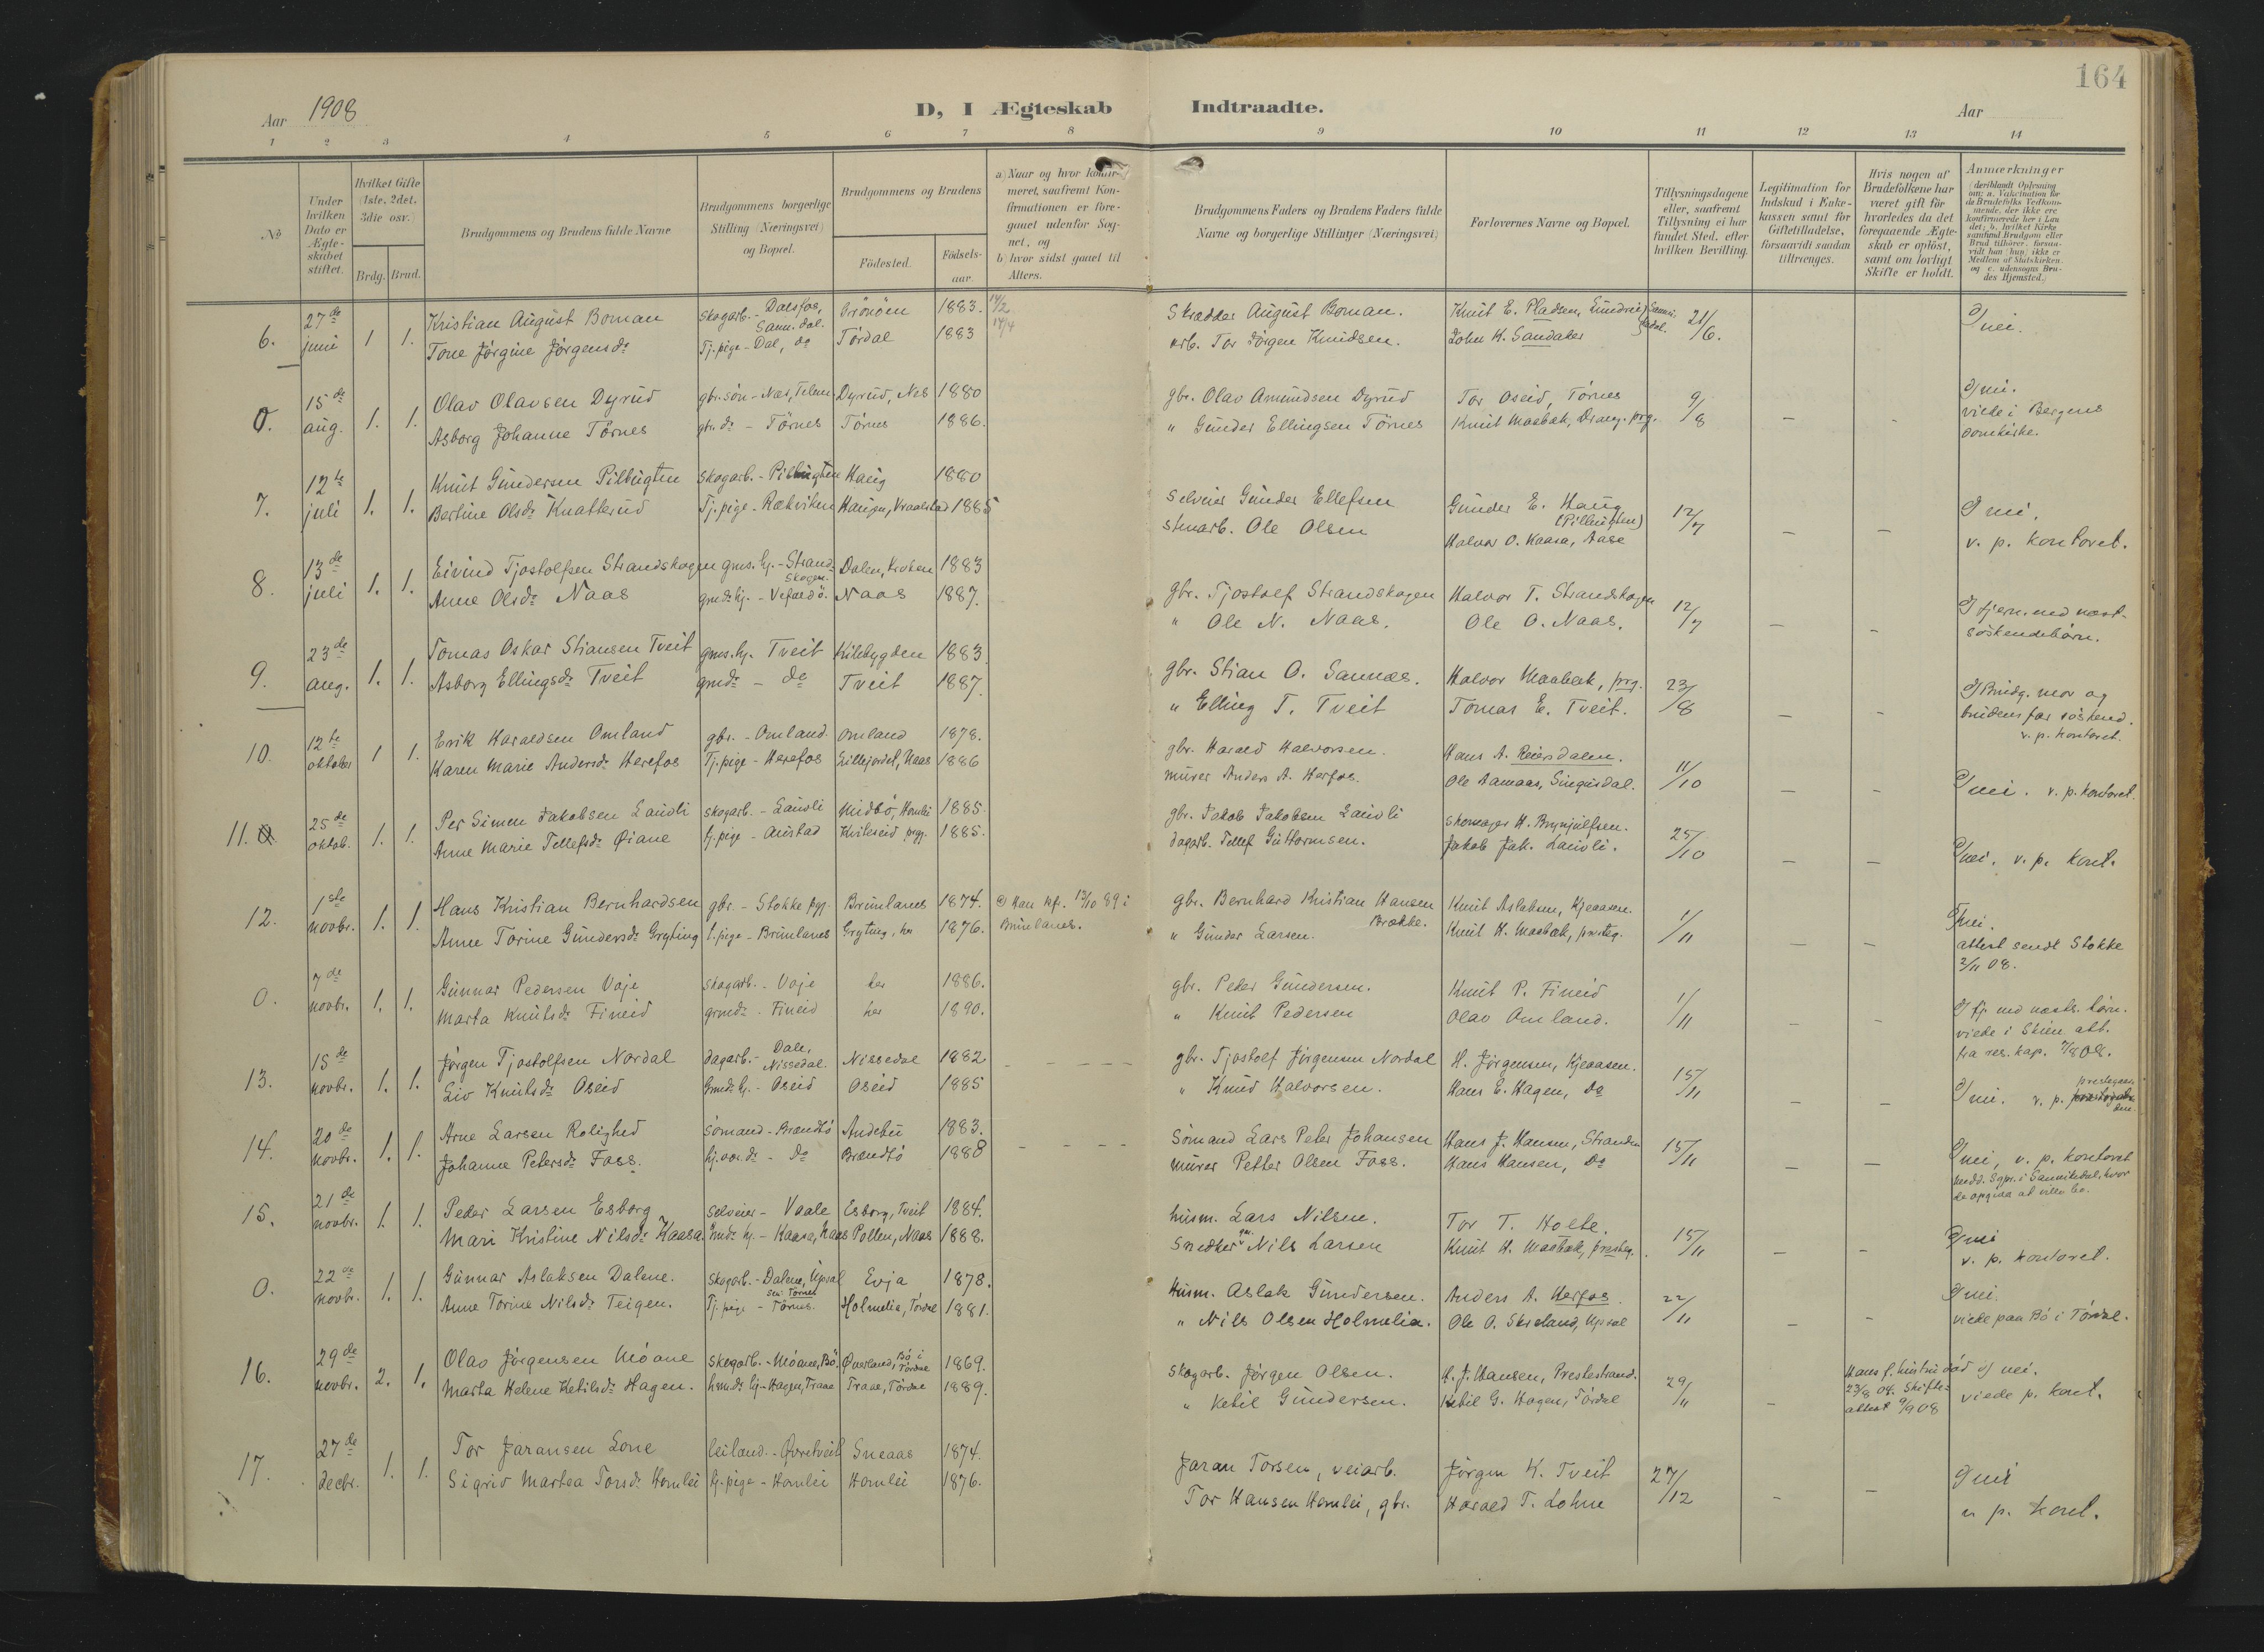 164
Aar 1908
D, I Ægteskab Indtraadte.
Aar
1 2 3 4 5 6 7 8 9 10 11 12 13 14
No
Under hvilken Dato er Ægteskabet stiftet.
Hvilket Gifte (1ste, 2det, 3die osv.)
Brdg. Brud.
Brudgommens og Brudens fulde Navne
Brudgommens borgerlige Stilling (Næringsvei) og Bopæl.
Brudgommens og Brudens
Fødested.
Fødselsaar.
a) Naar og hvor konfirmeret, saafremt Konfirmationen er foregaaet udenfor Sognet, og
b) hvor sidst gaaet til Alters.
Brudgommens Faders og Brudens Faders fulde Navne og borgerlige Stillinger (Næringsvei)
Forlovernes Navne og Bopæl.
Tillysningsdagene eller, saafremt Tillysning ei har fundet Sted, efter hvilken Bevilling.
Legitimation for Indskud i Enkekassen samt for Giftetilladelse, forsaavidt saadan tiltrænges.
Hvis nogen af Brudefolkene har været gift før hvorledes da det foregaaende Ægteskab er opløst, samt om lovligt Skifte er holdt.
Anmærkninger
(deriblandt Oplysning om: a. Vakcination for de Brudefolks Vedkommende, der ikke ere konfirmerede her i Landet; b. hvilket Kirkesamfund Brudgom eller Brud tilhører, forsaavidt han (hun) ikke er Medlem af Statskirken og c. udensogns Brudes Hjemsted.)
6. 27de juni 1 1.
Kristian August Boman skogarb. - Dalsfos, Sann.dal. Brönöen 1883. 14/2
Tone Jørgine Jørgensdr Tj.pige - Dal, do Tördal 1883 14/4
Skrædder August Boman. Knut E. Pladsen, Lundreid Sannikedal. 21/6.
arb. Tor Jörgen Knudsen. John K. Sandaker
nei.
0. 15de aug. 1. 1.
Olav Olavsen Dyrud gbr.sön - Næs, Telem Dyrud, Nes 1880
Asborg Johanne Törnes gbr.dr - Törnes Törnes 1886.
gbr. Olav Amundsen Dyrud Tor Oseid, Törnes 9/8 -
" Gunder Ellingsen Törnes Knut Maabæk, Drang. prg.
nei.
viede i Bergens
domkirke.
7. 12te juli 1. 1.
Knut Gundersen Pilbugten skogarb. - Pilbugten Haug 1880
Bertine Olsdr Knatterud Tj.pige - Rækviken Haugen, Kraalstad 1885
selveier Gunder Ellefsen Gunder E. Haug (Pilbugten) 12/7 - -
stenarb. Ole Olsen Halvor O. Kaasa, Aase
nei.
v. p. kontoret.
8. 13de juli 1. 1.
Eivind Tjostolfsen Strandskogen gms. hj. - Strandskogen. Dalen, Kroken 1883
Anne Olsdr Naas gmdr hj. - Vefaldö. Naas 1887.
gbr. Tjostolf Strandskogen Halvor T. Strandskogen 12/7 - -
" Ole N. Naas. Ole O. Naas.
fjerm. end næst-
söskendebörn.
9. 23de aug. 1. 1.
Tomas Oskar Stiansen Tveit gms. hj. Tveit Kilebygden 1883.
Asborg Ellingsdr Tveit gmdr - do Tveit 1887.
gbr. Stian O. Sannæs. Halvor Maabæk, prg. 23/8 - -
" Elling T. Tveit Tomas E. Tveit.
Brudg. mor og
brudens far söskend.
v. p. kontoret.
10. 12te oktober 1 1.
Erik Haraldsen Omland gbr. - Omland. Omland 1878.
Karen Marie Andersdr Herefos Tj.pige - Herefos Lillejordet, Naas 1886
gbr. Harald Halvorsen. Hans A. Reiersdalen. 11/10 -
murer Anders A. Herfos. Ole Aamaas, Singusdal.
nei. v. p. kontoret.
11. 25de oktob. 1. 1.
Per Simen Jakobsen Lauvli skogarb. - Lauvli Midbö, Homlei 1885.
Anne Marie Tellefsdr Øiane tj.pige - Austad Kviteseid prgj. 1885.
gbr. Jakob Jakobsen Lauvli skomager H. Brynjulfsen. 25/10 - -
dagarb. Tellef Guttormsen. Jakob Jak. Lauvli.
nei. v. p. kont.
12. 1ste novbr. 1. 1.
Hans Kristian Bernhardsen gbr. - Stokke pgj. Brunlanes 1874. a) Han kf. 13/10 89 i
Anne Torine Gundersdr Gryting t.pige - Brunlanes Gryting, her 1876. Brunlanes.
gbr. Bernhard Kristian Hansen Brække. Knut Aslaksen, Kjeaasen. 1/11 - -
" Gunder Larsen. Knut H. Maabæk, presteg.
nei.
attest sendt Stokke
2/11 08.
0. 7de novbr. 1. 1.
Gunnar Pedersen Voje skogarb. - Voje her 1886.
Marta Knutsdr Fineid grmdr - Fineid her 1890.
gbr. Peder Gundersen. Knut P. Fineid 1/11 - -
" Knut Pedersen Olav Omland.
fj. end næsts. børn.
viede i Skien att.
fra res. kap. 7/8 08.
13. 15de novbr. 1. 1.
Jørgen Tjostolfsen Nordal dagarb. - Dale, Nissedal. Nissedal 1882 - - - -
Liv Knutsdr Oseid Gmdr hj. - Oseid Oseid 1885
gbr. Tjostolf Jörgensen Nordal H. Jörgensen, Kjeaasen. 15/11 - -
" Knud Halvorsen. Hans E. Hagen, do
nei. v. p.
14. 20de novbr. 1. 1.
Arne Larsen Rolighed sömand - Brændtö Andebu 1883.
Johanne Petersdr Foss. hj.vær.dr - do Brændtö 1888 - - - -
Sömand Lars Peter Johansen Hans J. Hansen, Stranden 15/11 - -
murer Petter Olsen Foss. Hans Hansen, do
nei, v. p. kontoret
medd. sgpr. i Sannikedal, hvor
de opgaa at ville bo.
15. 21de novbr. 1. 1.
Peder Larsen Esborg selveier - Vaale Esborg, Tveit 1884.
Mari Kristine Nilsdr Kaasa. Gmdr hj. - Kaasa, Naas Pollen, Naas 1888.
husm. Lars Nilsen. Tor T. Holte. 15/11 - -
Snedker Nils Larsen Knut H. Maabæk, presteg.
nei
v. p. kontoret.
0. 22de novbr. 1. 1.
Gunnar Aslaksen Dalene. skogarb. - Dalene, Upsal Evje 1878.
Anne Torine Nilsdr Teigen. Tj.pige - Törnes. Holmelia, Tördal 1881.
Husm. Aslak Gundersen. Anders A. Herfos. 22/11 -
" Nils Olsen Holmelia. Ole O. Skreland, Upsal
nei.
viede paa Bö i Tördal.
16. 29de novbr. 2. 1.
Olav Jørgensen Móane skogarb. - Móane, Bö. Øverland, Bö i Tördal 1869.
Marta Helene Ketilsdr Hagen. hsm.dr hj - Hagen, Traae Traae, Tördal 1889.
skogarb. Jørgen Olsen. H. J. Hansen, Prestestrand. 29/11 -
" Ketil Gundersen. Ketil G. Hagen, Tördal
Hans f. hustru död
23/8 04. Skifte-
attest 9/9 08
nei.
viede p. kont.
17. 27de decbr. 1. 1.
Tor Jaransen Lone leiland. - Øvretveit Sneaas 1874.
Sigrid Martea Torsdr Homlei tj.pige - Homlei Homlei 1876.
Jaran Torsen, veiarb. Jörgen K. Tveit 27/12 - -
Tor Hansen Homlei, gbr. Harald T. Lohne
nei
v. p. kont.